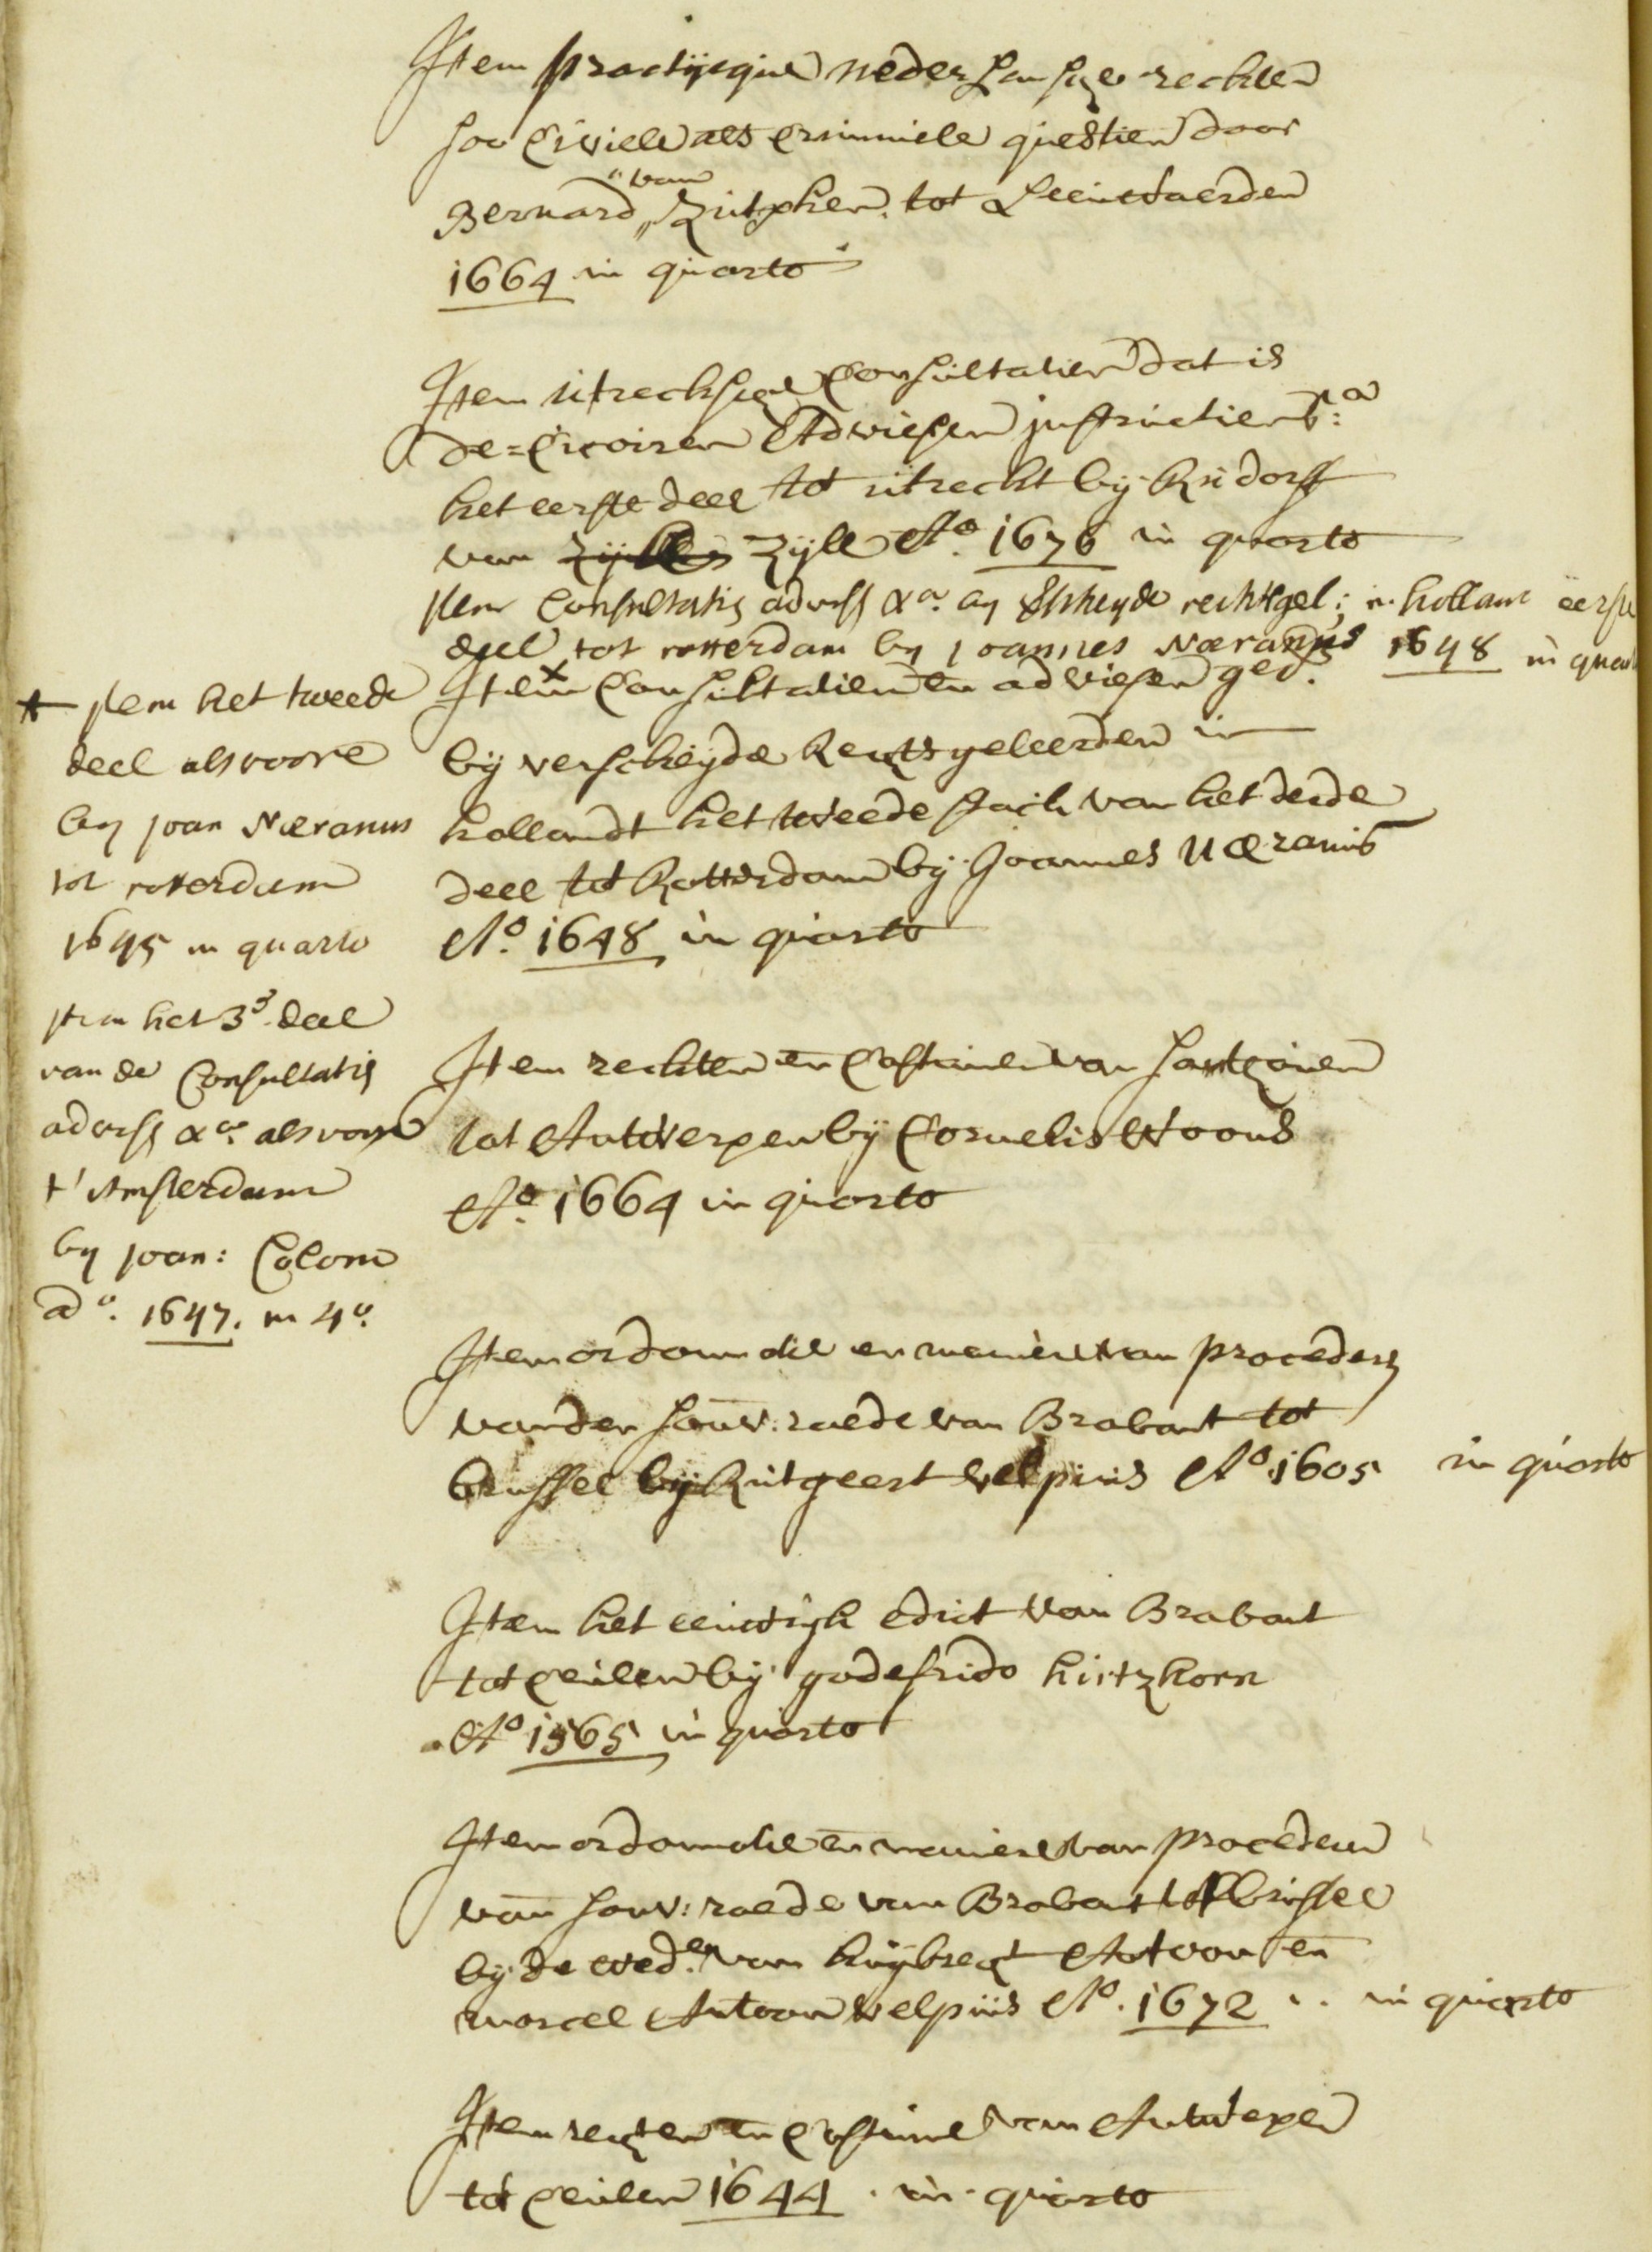 Item practijcque nederlansche rechten
soo Civiele als Criminiele questien door
Bernard van Zutphen tot Leeuwaerden
1664 in quarto
Item uitrechsche Consultatien dat is
de=Cisoiren Advisen instructien &a
het eerste deel tot uitrecht bij Ru dorff
van Zijll Ao. 1676 in quarto
Item Consultatis advijs &a. by Scheyde rechtsgel: in hollant eerste
deel tot rotterdam by Joannes Næranus 1648 in quarto
Item Consultatien en adviesen ged.
bij verscheijde Rechtsgeleerden in
hollandt het tweede stuck van het derde
deel tot Rotterdam bij Joannes Næranus
Ao. 1648 in quarto
* Item het tweede
deel als voore
by Joan Næranus
tot rotterdam
1645 in quarto
Item het 3e deel
van de Consultatis
advijs &a. als voore
t' Amsterdam
by Joan: Colom
ao. 1647. in 4o.
Item rechten en Costuimen van Santhoven
tot Antwerpen bij Cornelis Woons
Ao. 1664 in quarto
Item ordonnantie en maniere van procederen
van den souv: raede van Brabant tot
brussel bij Rutgeert velpius Ao 1605 in quarto
Item het eeuwigh edict van Brabant
tot Ceulen bij godefrido hirtzhorn
Ao 1565 in quarto
Item ordonnantie en maniere van procederen
van souv: raede van Brabant tot brussel
bij de wed.e van huijbrecht Antoon en
marcel Antoon velpius Ao. 1672 in quarto
Item rechten en Costuime van Antwerpen
tot Ceulen 1644 in quarto